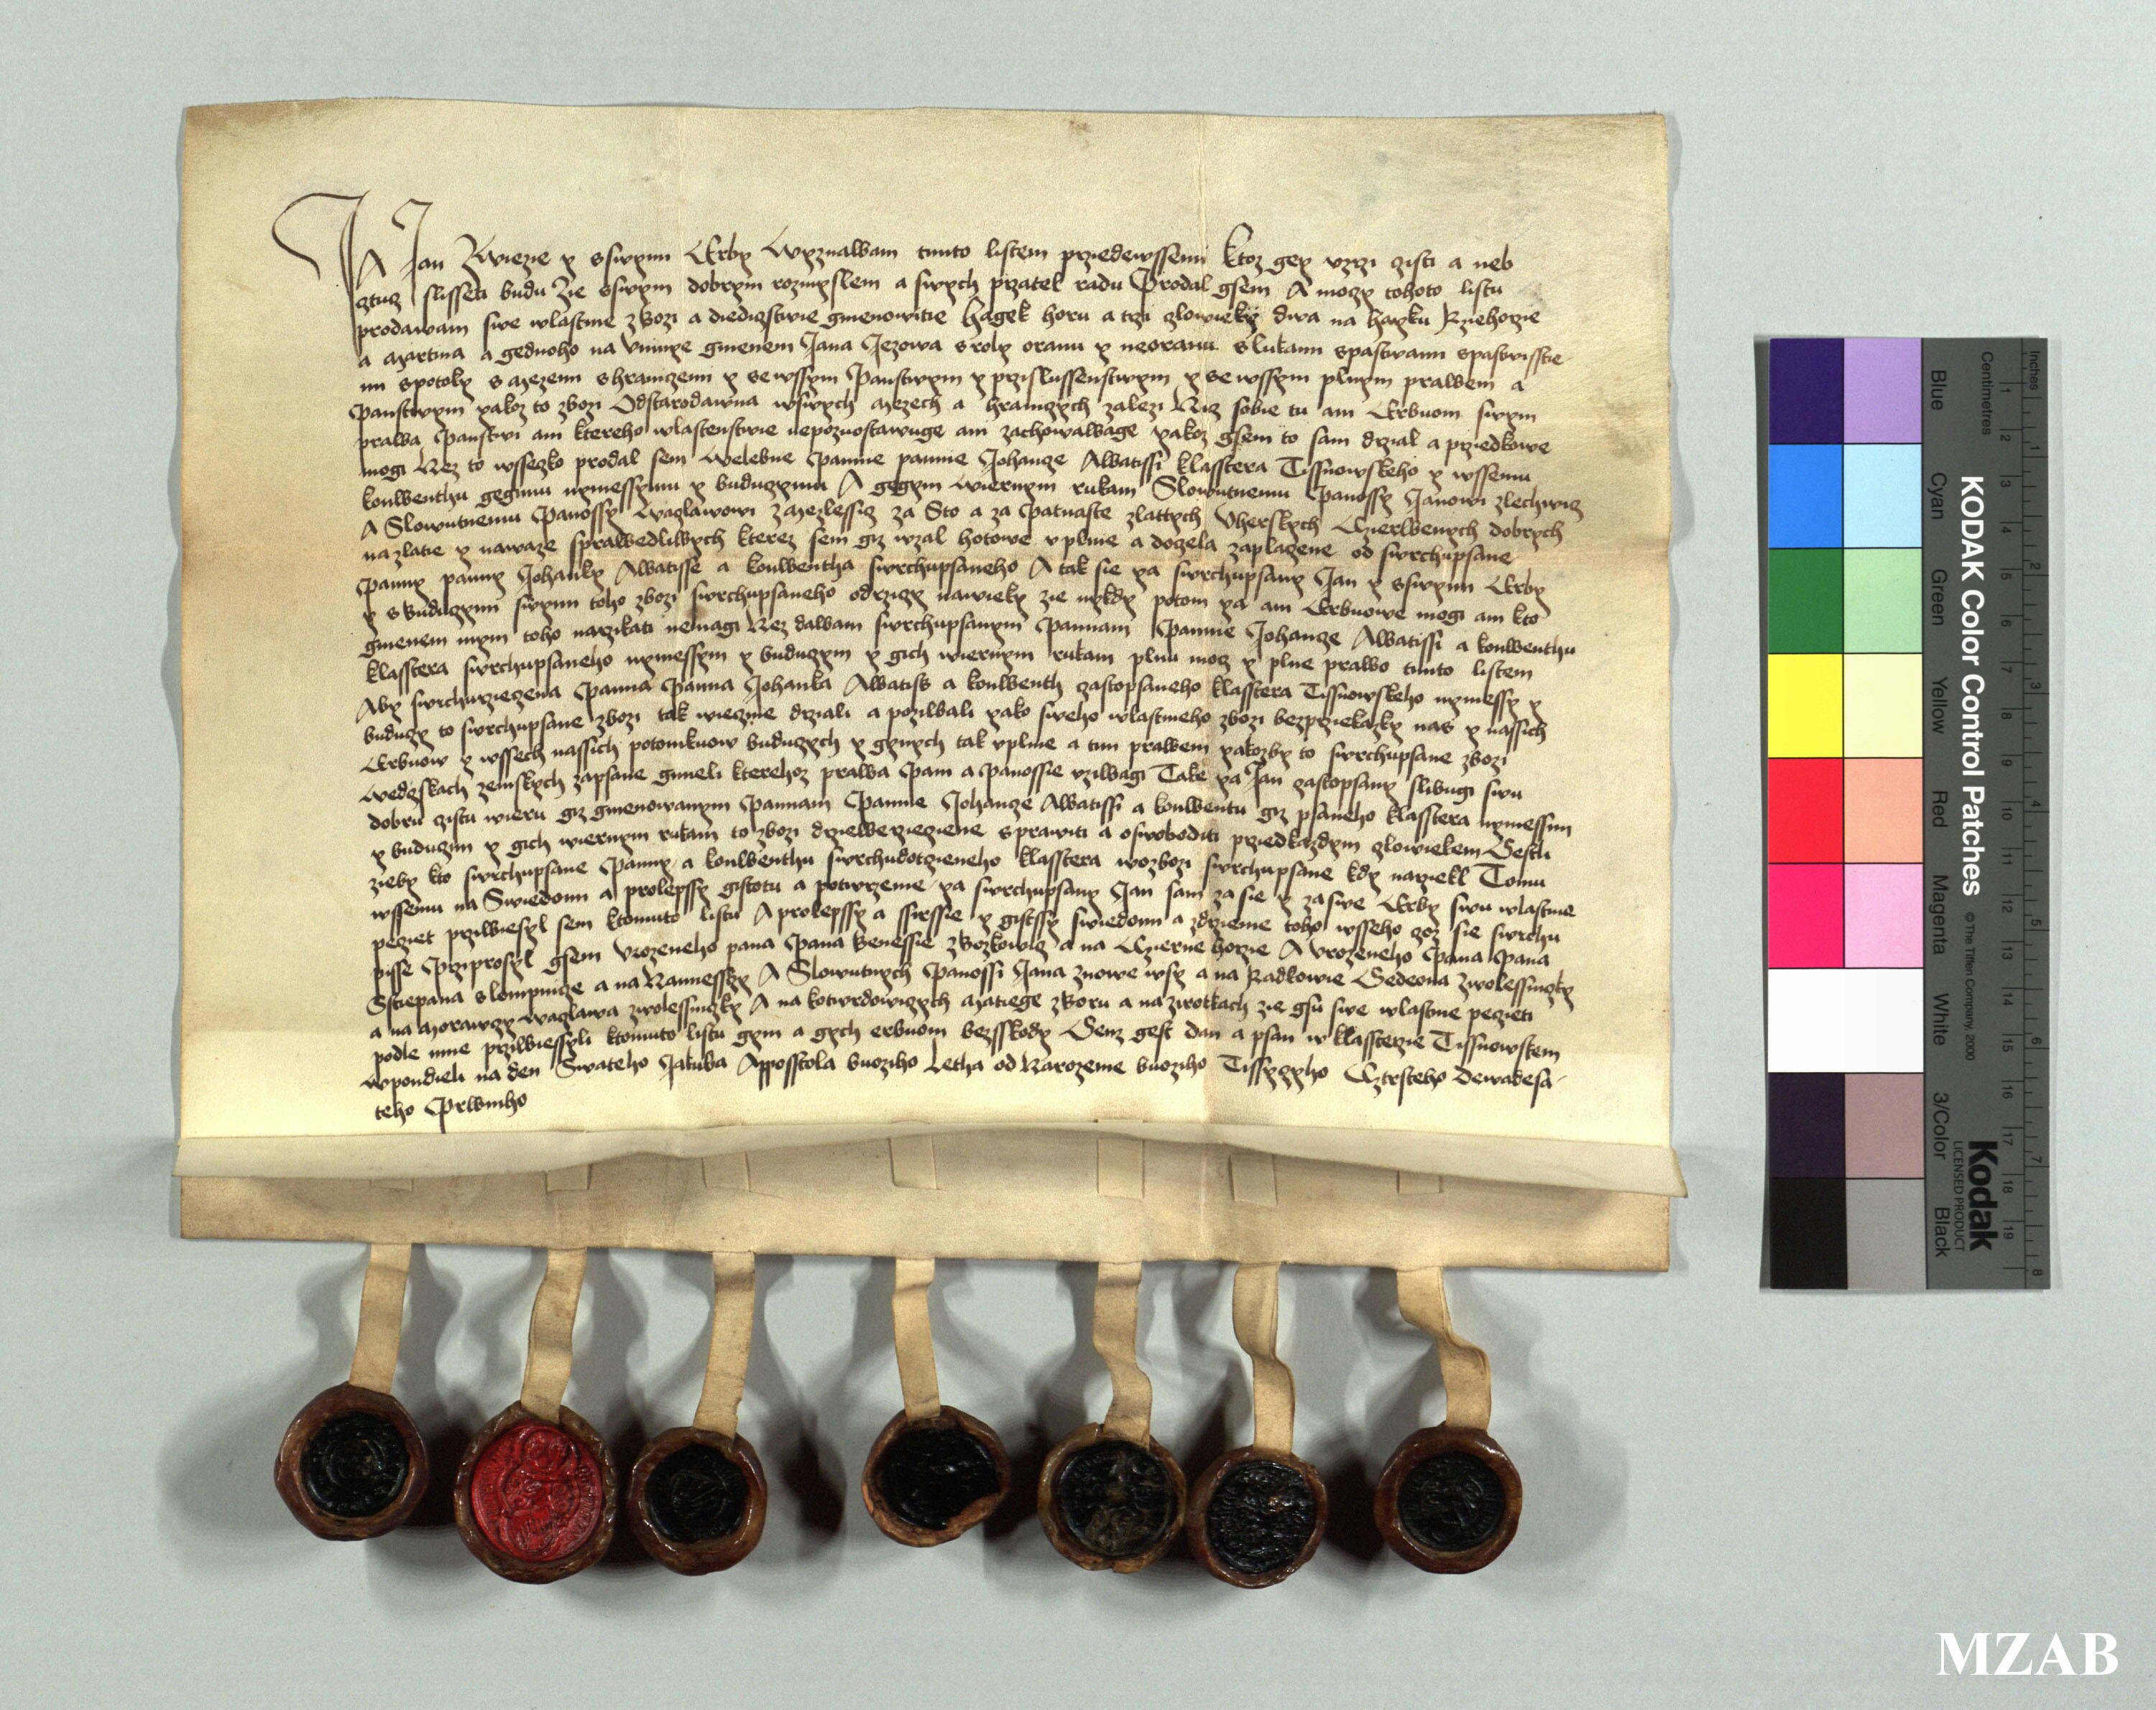 JA Jan Zwiezie y sswymi Erby Wyznalbam tiemto listem przedewssemi Ktoz gey vzrzi czisti a neb
cztucz slisseti budu Zie sswym dobrym rozmyslem a swych przatel radu Prodal gsem A moczy tohoto listu
prodawam swe wlastnie zbozi a diedicztwie gmenowitie Hagek horu a trzi czlowieky dwa na hayku Rziehorzie
a Martina a gednoho na gmenem Jana Jezowa sroly oranu y neoranu slukami spastwami spastwisstie-
mi spotoky smezemi shraniczemi y sewssym Panstwym y przislussenstwym y sewssym plnym prawem a
Panstwym yakoz to zbozi Odstarodawna wswych mezech a hraniczych zalezi Niz sobie tu ani Erbuom swym
prawa Panstwi ani kterehо wlastenstwie nepozuostawuge ani zachowalwage yakoz gsem to sam drzal a przedkowe
mogi Nez to wsseczko prodal sem Welebne Pannie pannie Johancze Abatissi klasstera Tissnowskeho y wssemu
konwenthu geginu nyniessymu y buduczymu A gegym wiernym rukam Slowutnemu Panossy Janowi zlechwicz
A Slowutnemu Panossy Waczlawowi za Sto a za Patnaste zlattych Vherskych Czierwenych dobrych
nazlatie y nawaze sprawedliwych kterez sem giz wzal hotowe vplnie a doczela zaplaczene od swrchupsane
Panny panny Johanky Abatisse a konwentha swrchupsaneho A tak sie ya swrchupsany Jan y sswymi Erby
y sbuduczymi swymi toho zbozi swrchupsaneho odrziczy nawieky zie nykdy potom ya ani Erbuowe mogi ani kto
gmenem mym toho narzikati nemagi Nez dawam swrchupsanym Pannam Pannie Johancze Abatissi a konwenthu
klasstera swrchupsaneho nyniessym y buduczym y gich wiernym rukam plnu mocz y plne prawo tiemto listem
Aby swrchurzieczena Panna Panna Johanka Abatiss a konwenth czastopsaneho klasstera Tissnowskeho nyniessy y
buduczy to swrchupsane zbozi tak wiecznie drziali a pozilbali yako sweho wlastnieho zbozi bezprziekazky nas y nassich
Erbuow y wssech nassich potomkuow buduczych y gynych tak vplnie a tim prawem yakozby to swrchupsane zbozi
Wedczkach zemskych zapsane gmieli kterehoz prawa Pani a Panossie vzilwagi Take ya Jan czastopsany slibugi swu
dobru czistu wieru giz gmenowanym Pannam Pannie Johancze Abatissi a konwentu giz psaneho klasstera nyniessim
y buduczim y gich wiernym rukam to zbozi drziewerzieczene sprawiti a oswoboditi przedkazdym czlowiekem Gestli
zieby kto swrchupsane Panny a konwenthu swrchudotczieneho klasstera wozbozi swrchupsane kdy narziekl Tomu
wssemu na Swiedomi a prolepssy gistotu a potwrzenie ya swrchupsany Jan sam za sie y zaswe Erby swu wlastnie
peczet przilbiesyl sem ktomuto listu A prolepssy a ssirssie y gistssy swiedomi a zdrzienie toho wsseho czoz sie swrchu
pisse Przyprosyl gsem Vrozeneho pana Pana Benessie zBozkowicz a na Czierne horzie A Vrozeneho Pana Pana
Sstiepana slompnicze a na Namiesszy A Slowutnych Panossi Jana znowe wsy a na Radkowie Gedeona zwolessniczky
a na Morawczy Waczlawa zwolessniczky A na kotwrdowiczych Matiege zBoru a na zwotkach zie gsu swe wlastnie peczieti
podle mne przilbiessyli ktomuto listu gym a gych erbuom bezsskody Genz gest dan a psan w klassterzie Tissnowskem
Wpondieli na den Swateho Jakuba Apposstola buoziho Letha od Narozenie buoziho Tissyczyho Cztrsteho Dewadesa-
teho Prwniho
KODAK Color Control Patches
© The Tiffen Company, 2000
Kodak
LICENSED PRODUCT
Blue Cyan Green Yellow Red Magenta White 3/Color Black
Centimetres
Inches
1 2 3 4 5 6 7 8 9 10 11 12 13 14 15 16 17 18 19
1 2 3 4 5 6 7 8
MZAB